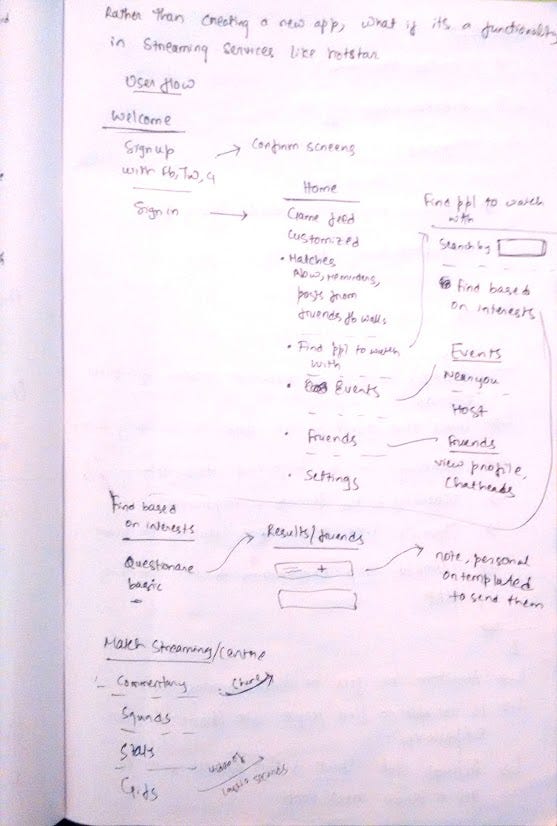 Rather than creating a new app, what if its a functionality
in Streaming services like hotstar
User flow
Welcome
Sign up
with Fb, Tw, G
Confirm screens
Sign in
Home
Game feed
Customized
• Matches
Now, reminders,
posts from
friends, fb walls
• Find ppl to watch
with
• Events
• Friends
• Settings
Find ppl to watch
with
Search by
Find based
on interests
Events
Near you
Host
Friends
view profile,
Chatheads
Find based
on interests
Questionare
basic
Results/friends
+
note, personal
or templated
to send them
Match Streaming/Centre
Commentary
Share
Squads
Stats
Gifs